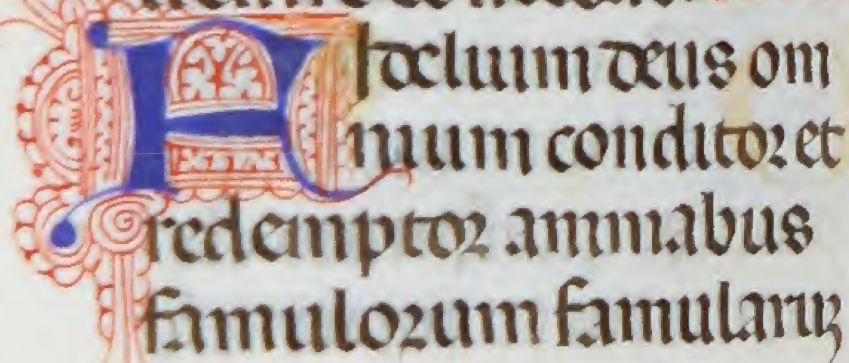 Fidelium deus om
nium conditor et
redemptor animabus
famulorum famularuꝫ